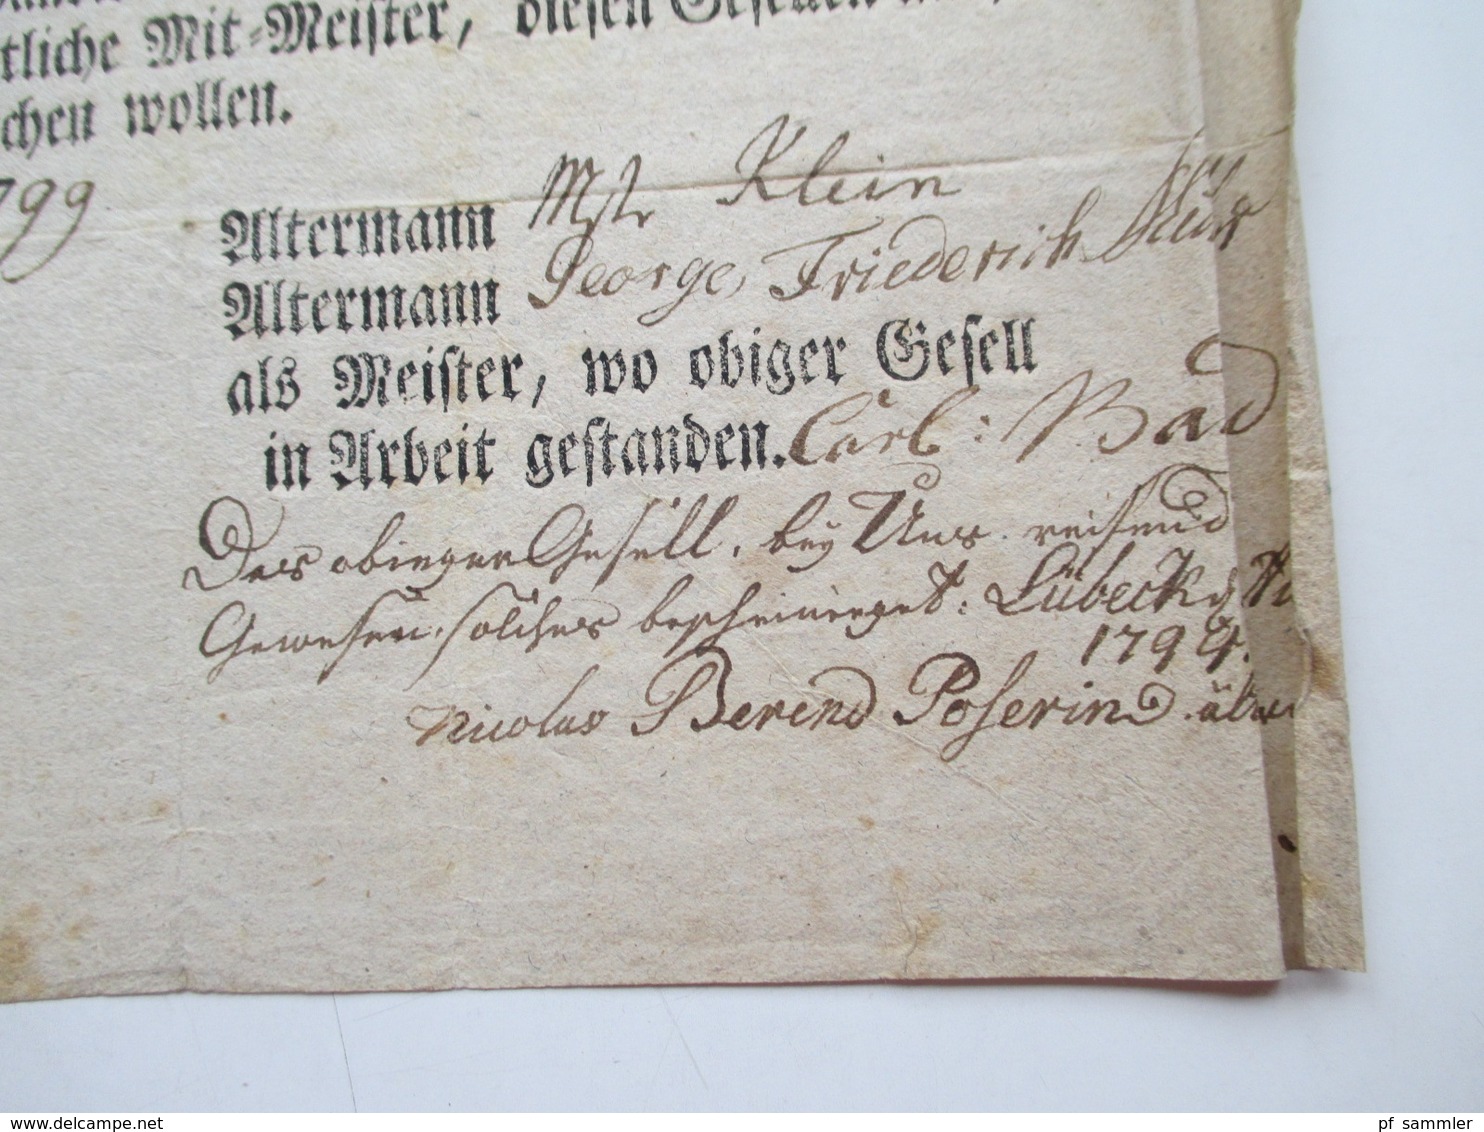 tliche Mit-Meister, diesen Gesellen
chen wollen.
799
Altermann Mstr Klein
Altermann George Friederich
als Meister, wo obiger Gesell
in Arbeit gestanden. Carl: Bad
Das obieger Gesell, bey Uns reisend
Gewesen, solches bescheiniget: Lübeck d
1799.
Nicolas Berend Poserind
www.delcampe.net
pf_sammler